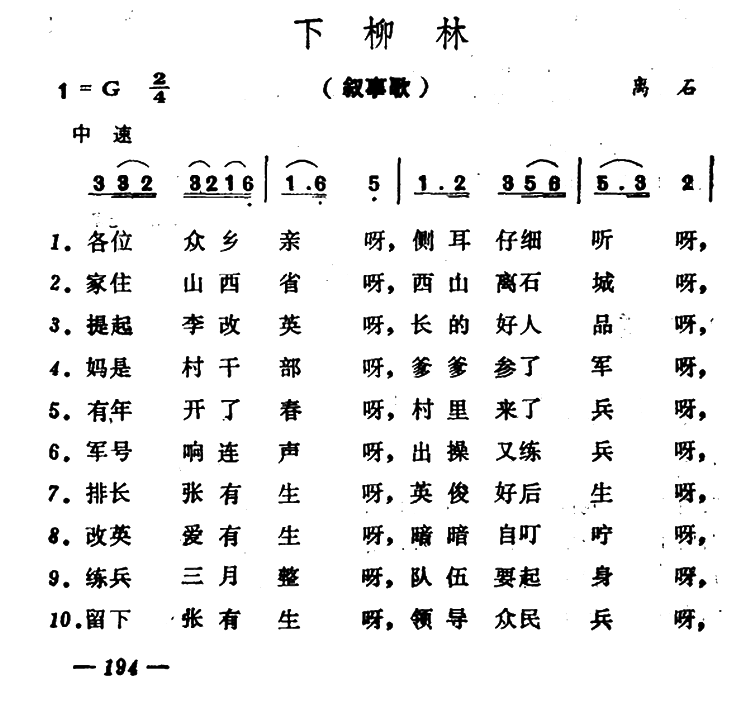 下柳林
1=G 2/4 （叙事歌） 离石
中速
3 3 2 3 2 1 6 | 1 . 6 5 | 1 . 2 3 5 6 | 5 . 3 2 |
1. 各位 众乡亲 呀，侧耳仔细听 呀，
2. 家住 山西省 呀，西山离石城 呀，
3. 提起 李改英 呀，长的好人品 呀，
4. 妈是 村干部 呀，爹爹参了军 呀，
5. 有年 开了春 呀，村里来了兵 呀，
6. 军号 响连声 呀，出操又练兵 呀，
7. 排长 张有生 呀，英俊好后生 呀，
8. 改英 爱有生 呀，暗暗自叮咛 呀，
9. 练兵 三月整 呀，队伍要起身 呀，
10. 留下 张有生 呀，领导众民兵 呀，
— 194 —